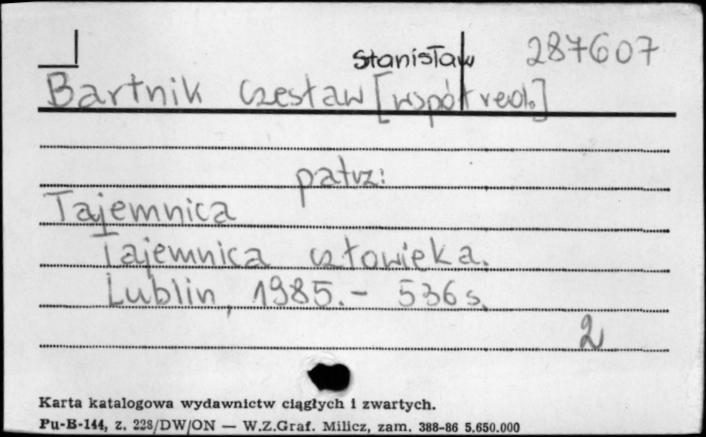 Stanisław 287607
Bartnik Czesław [współred.]
patrz:
Tajemnica
Tajemnica człowieka.
Lublin, 1985.- 536 s.
2
Karta katalogowa wydawnictw ciągłych i zwartych.
Pu-B-144, z. 228/DW/ON — W.Z.Graf. Milicz, zam. 388-86 5.650.000